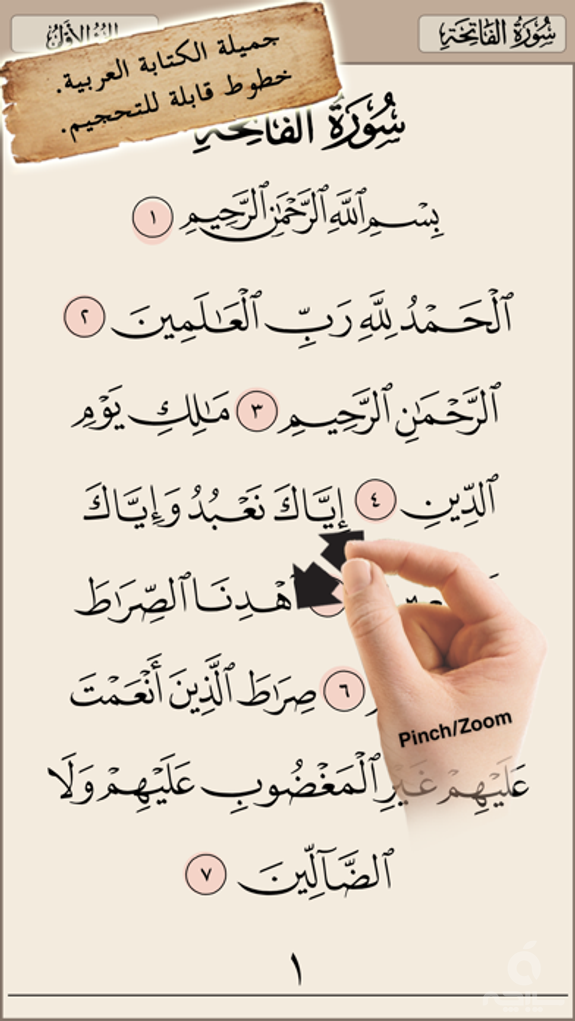 سُورَةُ الفَاتِحَةِ
جميلة الكتابة العربية.
خطوط قابلة للتحجيم.
سُورَةُ الفَاتِحَةِ
بِسْمِ ٱللَّهِ ٱلرَّحْمَٰنِ ٱلرَّحِيمِ ١
ٱلْحَمْدُ لِلَّهِ رَبِّ ٱلْعَٰلَمِينَ ٢
ٱلرَّحْمَٰنِ ٱلرَّحِيمِ ٣ مَٰلِكِ يَوْمِ
ٱلدِّينِ ٤ إِيَّاكَ نَعْبُدُ وَإِيَّاكَ
ٱلصِّرَٰطَ
٦ صِرَٰطَ ٱلَّذِينَ أَنْعَمْتَ
عَلَيْهِمْ غَيْرِ ٱلْمَغْضُوبِ عَلَيْهِمْ وَلَا
ٱلضَّآلِّينَ ٧
Pinch/Zoom
١